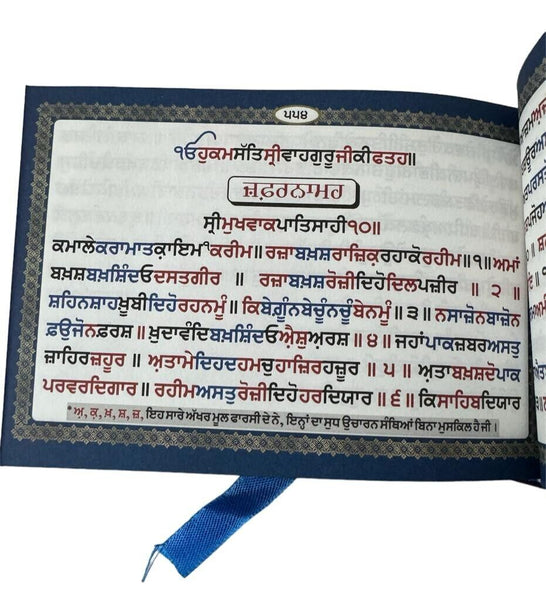 ੫੫੪
੧ਓਹੁਕਮਸੱਤਿਸ੍ਰੀਵਾਹਗੁਰੂਜੀਕੀਫਤਹ॥
ਜ਼ਫ਼ਰਨਾਮਹ
ਸ੍ਰੀਮੁਖਵਾਕਪਾਤਿਸਾਹੀ੧੦॥
ਕਮਾਲੇਕਰਾਮਾਤਕ਼ਾਇਮ*ਕਰੀਮ॥ਰਜ਼ਾਬਖ਼ਸ਼ਰਾਜ਼ਿਕ਼ਰਹਾਕੋਰਹੀਮ॥੧॥ਅਮਾਂ
ਬਖ਼ਸ਼ਬਖ਼ਸ਼ਿੰਦਓਦਸਤਗੀਰ ॥ ਰਜ਼ਾਬਖ਼ਸ਼ਰੋਜ਼ੀਦਿਹੋਦਿਲਪਜ਼ੀਰ ॥ ੨ ॥
ਸ਼ਹਿਨਸ਼ਾਹਖ਼ੂਬੀਦਿਹੋਰਹਨਮੂੰ॥ਕਿਬੇਗ਼ੂੰਨਬੇਚੂੰਨਚੂੰਬੇਨਮੂੰ॥੩॥ਨਸਾਜ਼ੋਨਬਾਜ਼ੋਨ
ਫ਼ਉਜੋਨਫ਼ਰਸ਼॥ਖ਼ੁਦਾਵੰਦਿਬਖ਼ਸ਼ਿੰਦਓਐਸ਼ੁਅ਼ਰਸ਼॥੪॥ਜਹਾਂਪਾਕਜ਼ਬਰਅਸਤੁ
ਜ਼ਾਹਿਰਜ਼ਹੂਰ॥ ਅ਼ਤਾਮੇਦਿਹਦਹਮਚੁਹਾਜ਼ਿਰਹਜ਼ੂਰ॥ ੫ ॥ ਅ਼ਤਾਬਖ਼ਸ਼ਚੋਪਾਕ
ਪਰਵਰਦਿਗਾਰ॥ਰਹੀਮਅਸਤੁਰੋਜ਼ੀਦਿਹੋਹਰਦਿਯਾਰ॥੬॥ਕਿਸਾਹਿਬਦਿਯਾਰ
*ਅ਼, ਕ਼, ਖ਼, ਸ਼, ਜ਼, ਇਹ ਸਾਰੇ ਅੱਖਰ ਮੂਲ ਫਾਰਸੀ ਦੇ ਨੇ, ਇਨ੍ਹਾਂ ਦਾ ਸੁਧ ਉਚਾਰਨ ਸੰਥਿਆਂ ਬਿਨਾ ਮੁਸਕਿਲ ਹੈ ਜੀ।